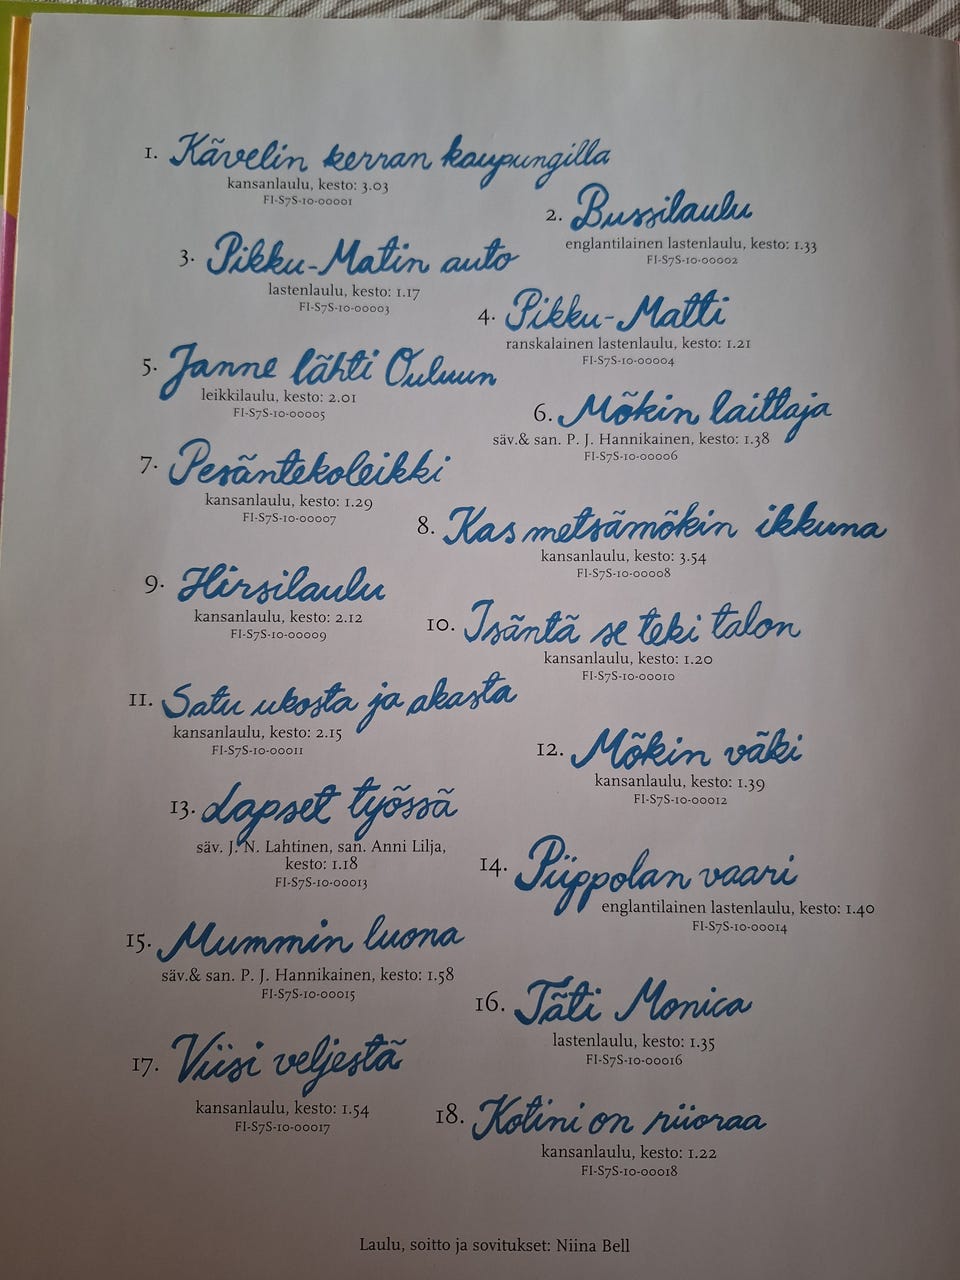 1. Kävelin kerran kaupungilla
kansanlaulu, kesto: 3.03
FI-S7S-10-00001
2. Bussilaulu
englantilainen lastenlaulu, kesto: 1.33
FI-S7S-10-00002
3. Pikku-Matin auto
lastenlaulu, kesto: 1.17
FI-S7S-10-00003
4. Pikku-Matti
ranskalainen lastenlaulu, kesto: 1.21
FI-S7S-10-00004
5. Janne lähti Ouluun
leikkilaulu, kesto: 2.01
FI-S7S-10-00005
6. Mökin laittaja
säv.& san. P. J. Hannikainen, kesto: 1.38
FI-S7S-10-00006
7. Pesäntekoleikki
kansanlaulu, kesto: 1.29
FI-S7S-10-00007
8. Kas metsämökin ikkuna
kansanlaulu, kesto: 3.54
FI-S7S-10-00008
9. Hirsilaulu
kansanlaulu, kesto: 2.12
FI-S7S-10-00009
10. Isäntä se teki talon
kansanlaulu, kesto: 1.20
FI-S7S-10-00010
11. Satu ukosta ja akasta
kansanlaulu, kesto: 2.15
FI-S7S-10-00011
12. Mökin väki
kansanlaulu, kesto: 1.39
FI-S7S-10-00012
13. Lapset työssä
säv. J. N. Lahtinen, san. Anni Lilja,
kesto: 1.18
FI-S7S-10-00013
14. Piippolan vaari
englantilainen lastenlaulu, kesto: 1.40
FI-S7S-10-00014
15. Mummin luona
säv.& san. P. J. Hannikainen, kesto: 1.58
FI-S7S-10-00015
16. Täti Monica
lastenlaulu, kesto: 1.35
FI-S7S-10-00016
17. Viisi veljestä
kansanlaulu, kesto: 1.54
FI-S7S-10-00017
18. Kotini on riioraa
kansanlaulu, kesto: 1.22
FI-S7S-10-00018
Laulu, soitto ja sovitukset: Niina Bell